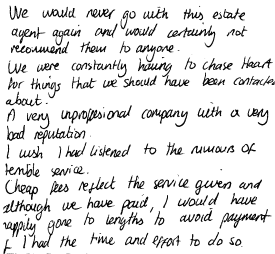 We would never go with this estate
agent again and would certainly not
recommend them to anyone.
We were constantly having to chase Heart
for things that we should have been contacted
about.
A very unprofessional company with a very
bad reputation.
I wish I had listened to the rumours of
terrible service.
Cheap fees reflect the service given and
although we have paid, I would have
happily gone to lengths to avoid payment
if I had the time and effort to do so.